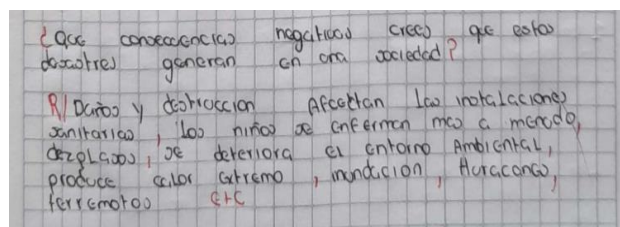 ¿Que consecuencias negativas crees que estos
desastres generan en una sociedad?
R/ Daños y destruccion Afecctan las instalaciones
sanitarias, los niños se enferman mas a menudo,
dezplazos, se deteriora el entorno Ambiental,
produce calor extremo, inundacion, Huracanes,
terremotos etc